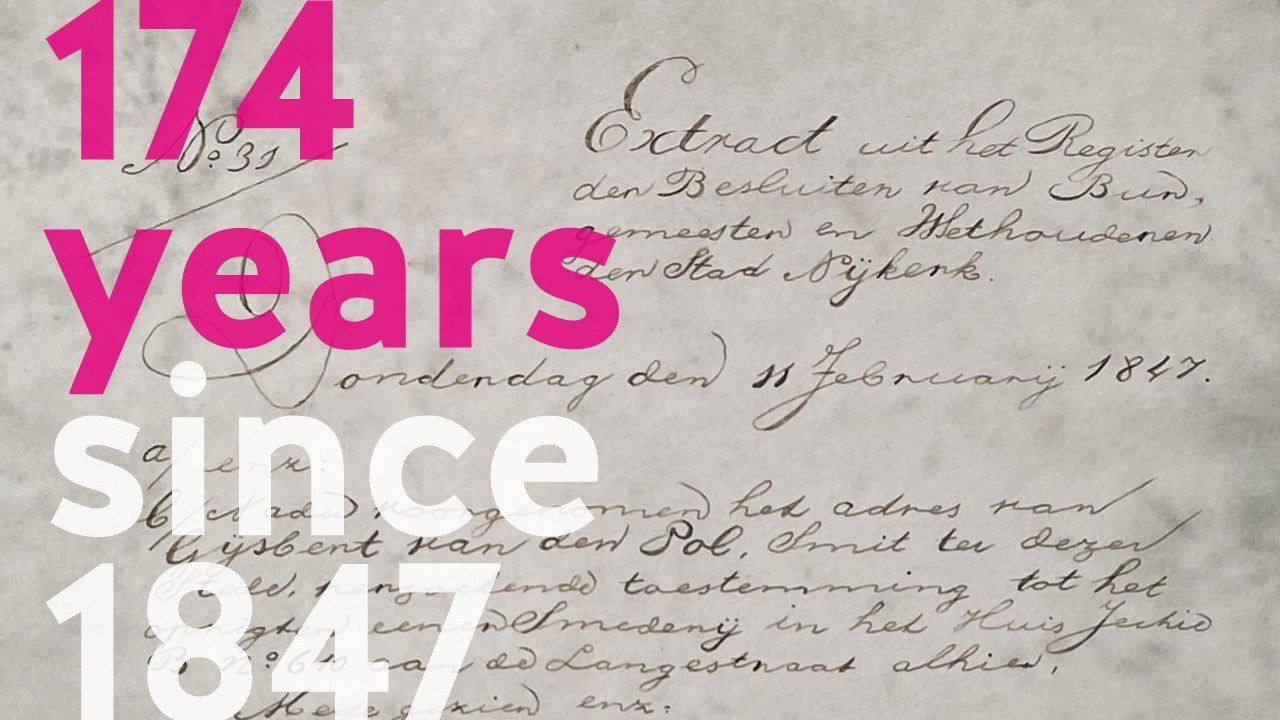 174
years
since
1847
No. 31
Extract uit het Register
der Besluiten van Bur,
gemeester en Wethouderen
der Stad Nijkerk.
Donderdag den 11 Februarij 1847.
a/ enz:
b/ Nader voorgenomen het adres van
Gijsbert van den Pol, Smit te dezer
Stede, verzoekende toestemming tot het
oprigten eener Smederij in het Huis
B No. 610 aan de Langestraat alhier,
gezien enz: